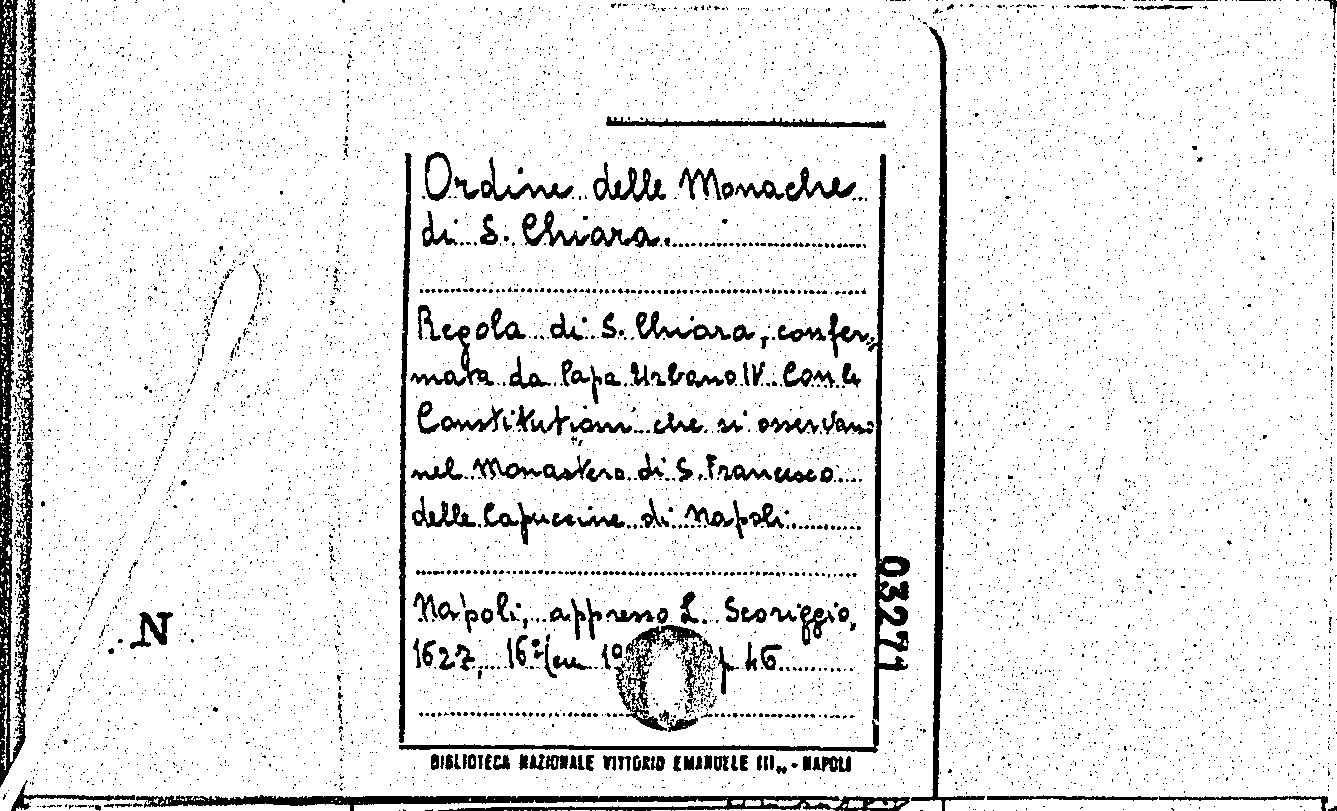 Ordine delle Monache
di S. Chiara.
Regola di S. Chiara, confer=
mata da Papa Urbano IV. Con le
Constitutioni che si osservano
nel Monastero di S. Francesco
delle Capuccine di Napoli.
Napoli, appresso L. Scoriggio,
1627, 16º (cm p. 46
BIBLIOTECA NAZIONALE VITTORIO EMANUELE III„ - NAPOLI
03271
N